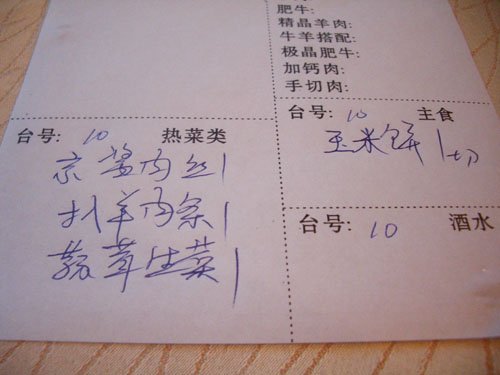 肥牛:
精晶羊肉:
牛羊搭配:
极晶肥牛:
加钙肉:
手切肉:
台号: 10 热菜类
京酱肉丝1
扒羊肉条1
蒜茸生菜1
台号: 10 主食
玉米饼1切
台号: 10 酒水